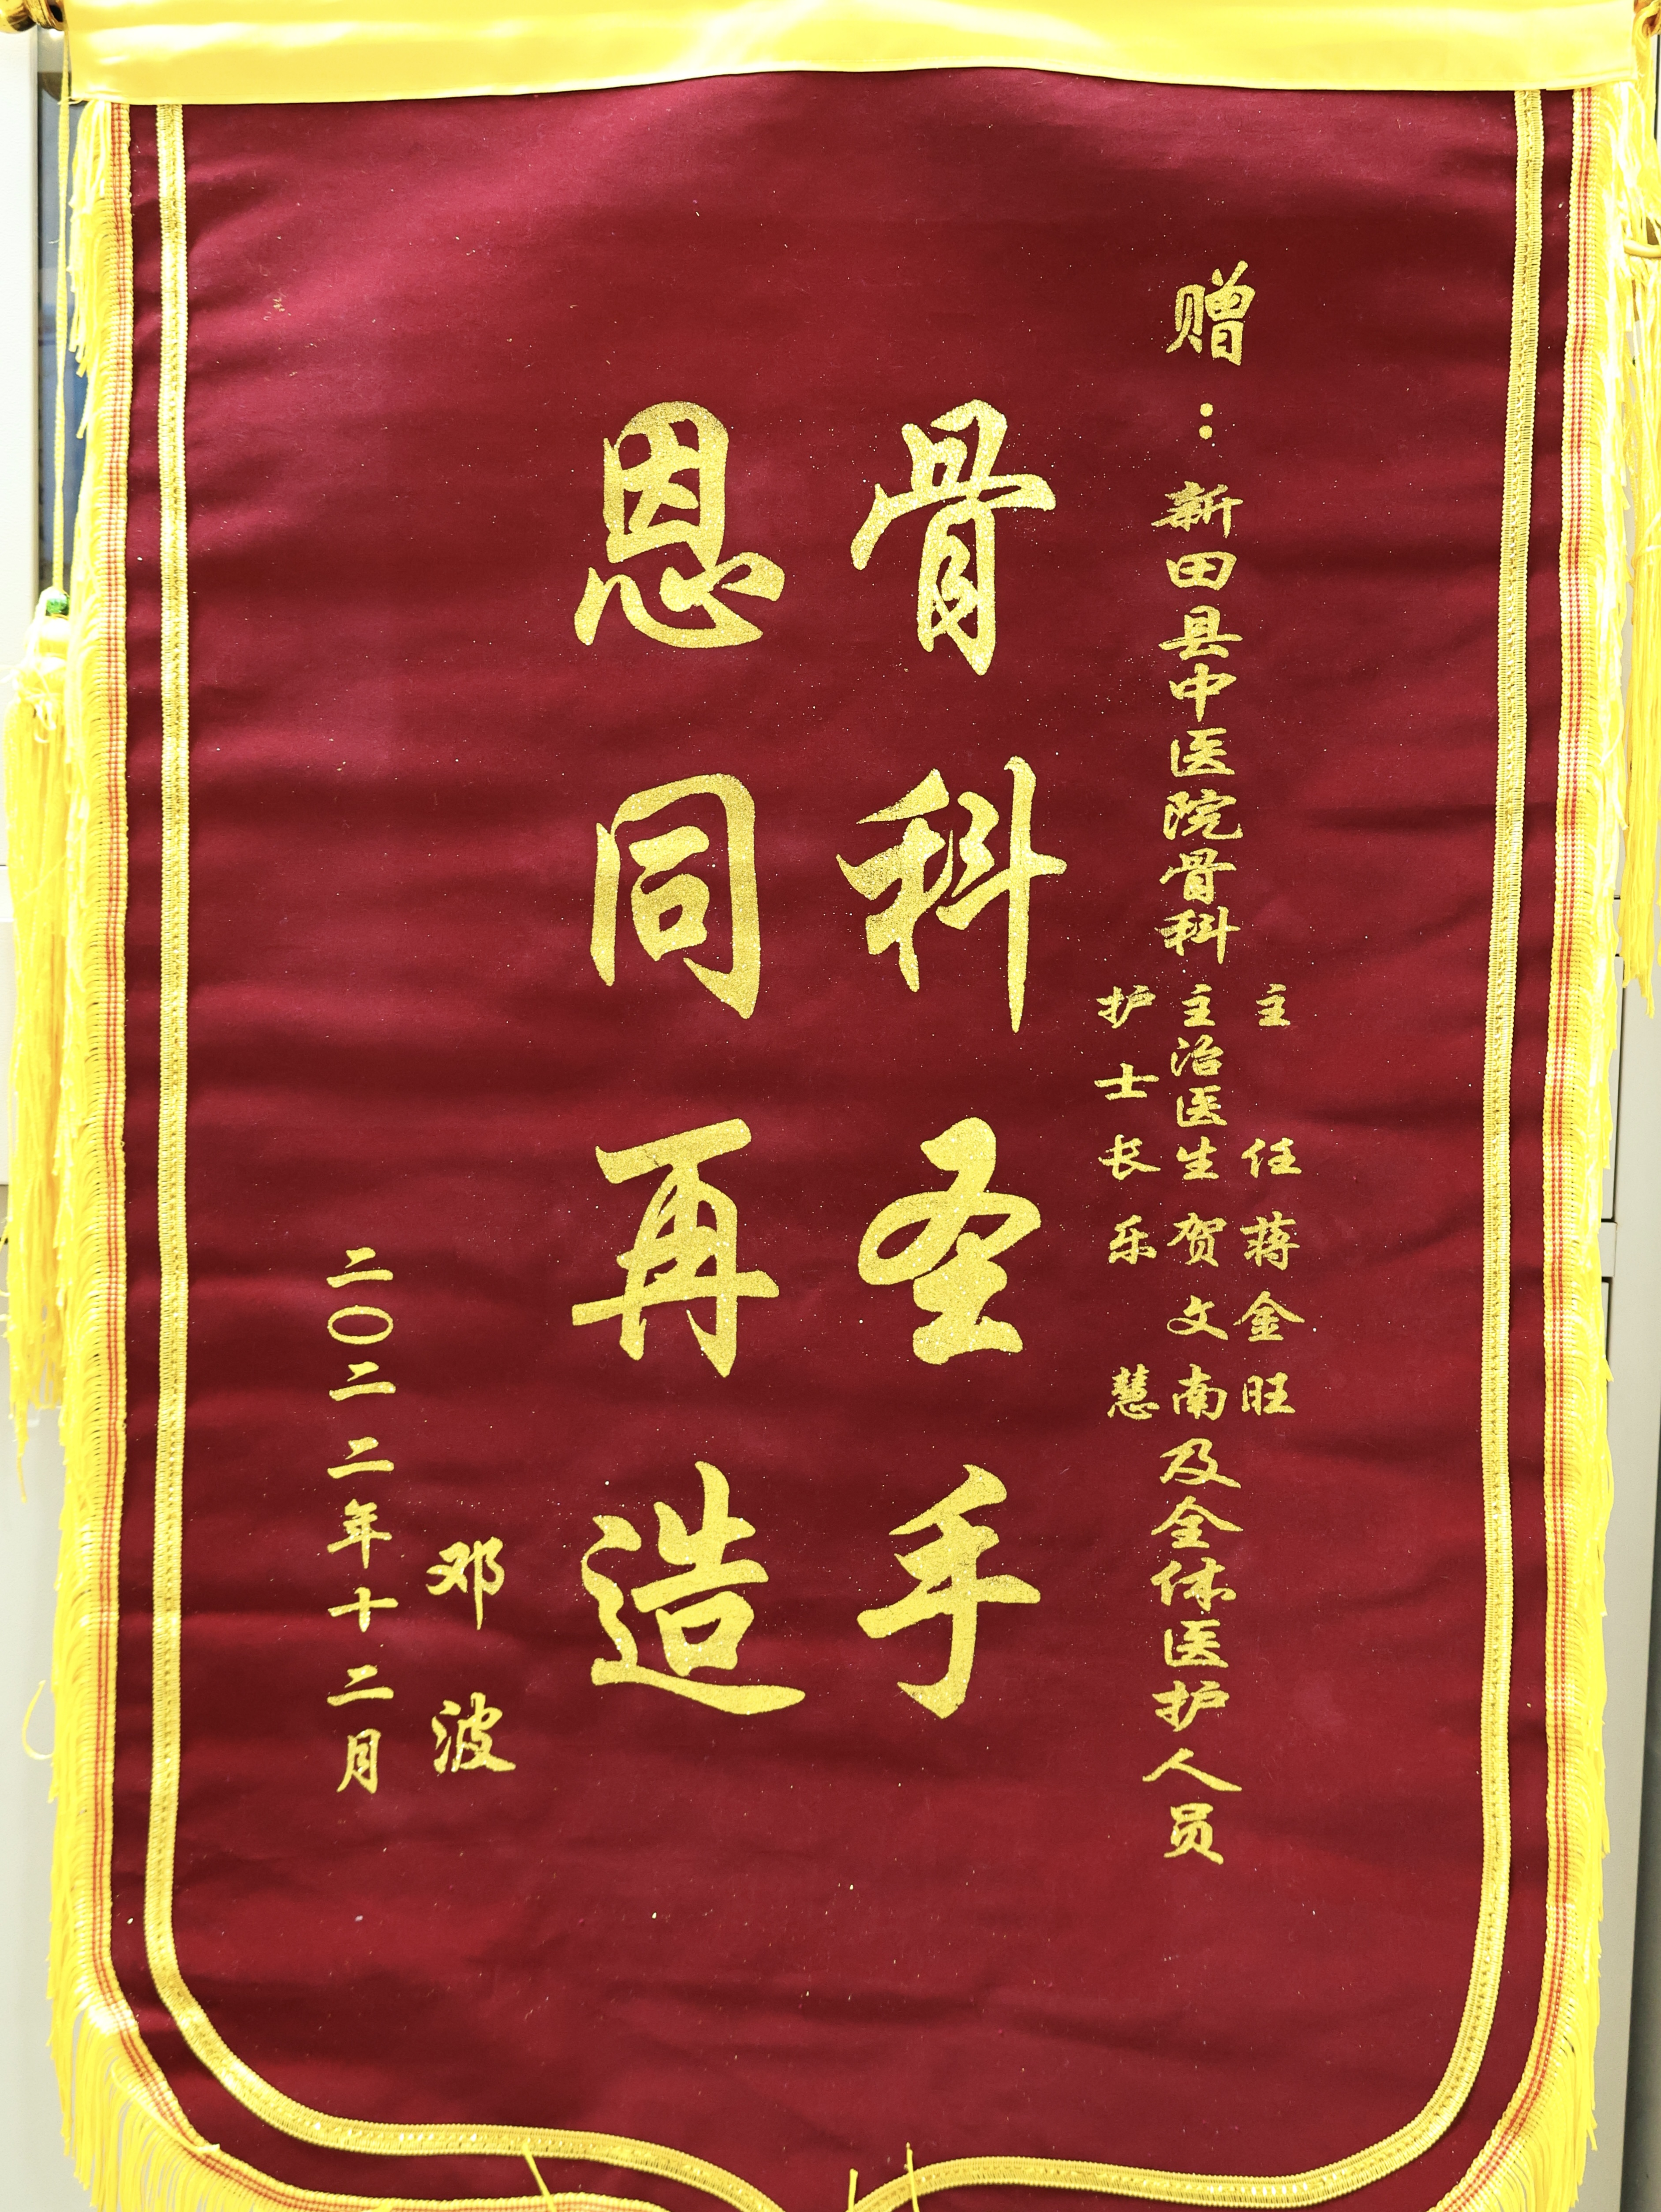 赠：新田县中医院骨科
主任蒋金旺
主治医生贺文南
护士长乐慧
及全体医护人员
骨科圣手
恩同再造
邓波
二〇二二年十二月